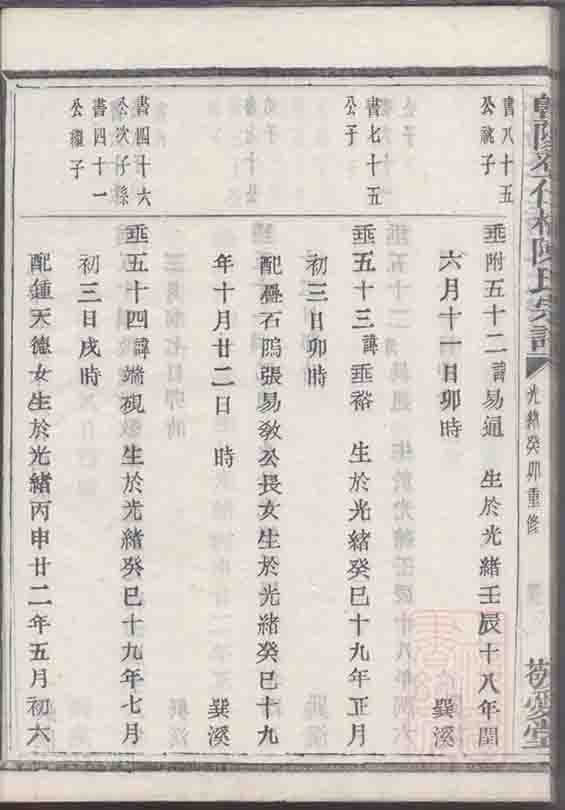 光緒癸卯重修
敬愛堂
書八十五
公祧子
垂附五十二諱易通 生於光緒壬辰十八年閏
六月十一日卯時 巽溪
書七十五
公子
垂五十三諱垂裕 生於光緒癸巳十九年正月
初三日卯時 巽溪
配疊石隝張易敎公長女生於光緒癸巳十九
年十月廿二日 時
書四十六
公次子繇
書四十一
公繼子
垂五十四諱端硯生於光緒癸巳十九年七月
初三日戌時 巽溪
配鍾天德女生於光緒丙申廿二年五月初六